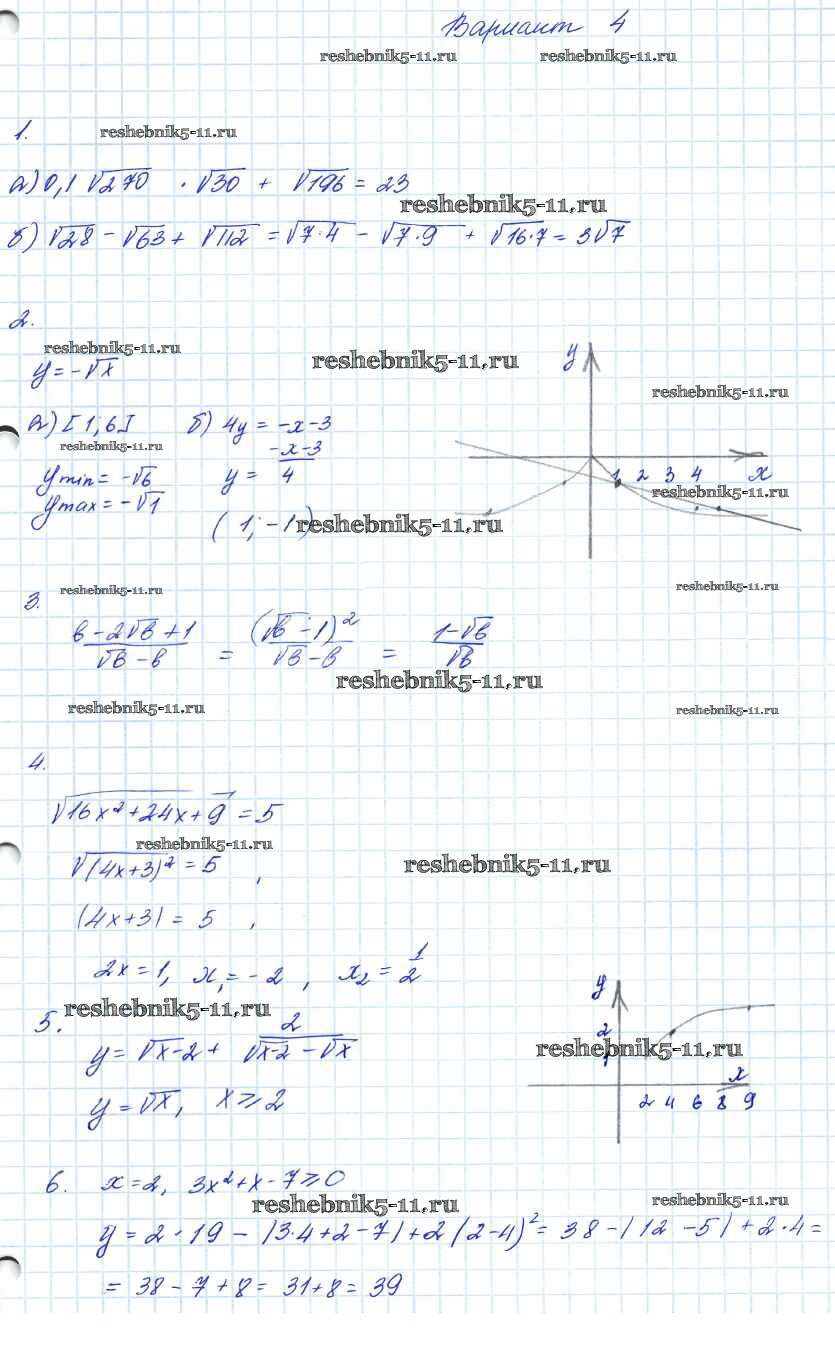 Вариант 4
reshebnik5-11.ru reshebnik5-11.ru
1. reshebnik5-11.ru
а) 0,1 √270 · √30 + √196 = 23
reshebnik5-11.ru
б) √28 - √63 + √112 = √7·4 - √7·9 + √16·7 = 3√7
2.
reshebnik5-11.ru reshebnik5-11.ru
y = -√x
reshebnik5-11.ru
а) [1; 6] б) 4y = -x-3
reshebnik5-11.ru
y min = -√6 y = (-x-3)/4
y max = -√1
(1; -1)
reshebnik5-11.ru
y
1 2 3 4 x
reshebnik5-11.ru
3. reshebnik5-11.ru reshebnik5-11.ru
(в - 2√в + 1)/(√в - в) = (√в - 1)²/(√в - в) = (1-√в)/√в
reshebnik5-11.ru
reshebnik5-11.ru reshebnik5-11.ru
4.
√16x²+24x+9 = 5
reshebnik5-11.ru
√(4x+3)² = 5 ,
reshebnik5-11.ru
(4x+3) = 5 ,
2x = 1, x₁ = -2 , x₂ = 1/2
reshebnik5-11.ru
5.
y = √x-2 + 2/(√x-2 - √x)
y = √x, x ≥ 2
y
2
1
reshebnik5-11.ru
x
2 4 6 8 9
6. x = 2, 3x²+x-7 ≥ 0
reshebnik5-11.ru reshebnik5-11.ru
y = 2·19 - |3·4+2-7| + 2(2-4)² = 38 - |12 -5| + 2·4 =
= 38 - 7 + 8 = 31+8 = 39